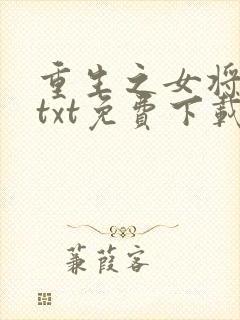 重生之女将
txt免费下载
蒹葭客